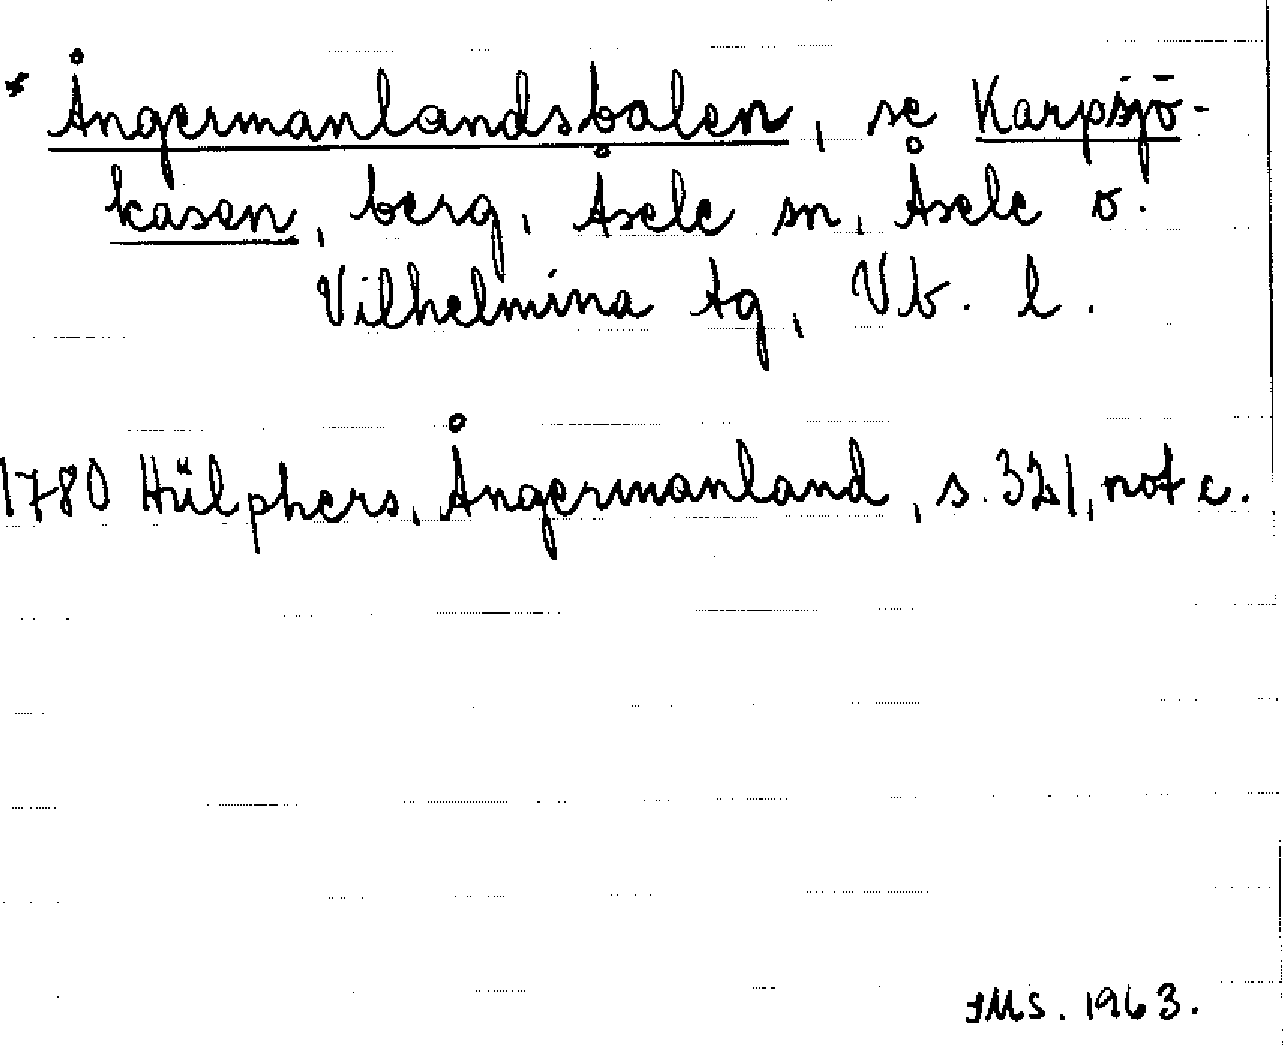 * Ångermanlandsbalen, se Karpsjö-
kåsen, berg, Åsele sn, Åsele o.
Vilhelmina tg, Vb. l.
1780 Hülphers, Ångermanland, s. 321, not c.
JMS. 1963.